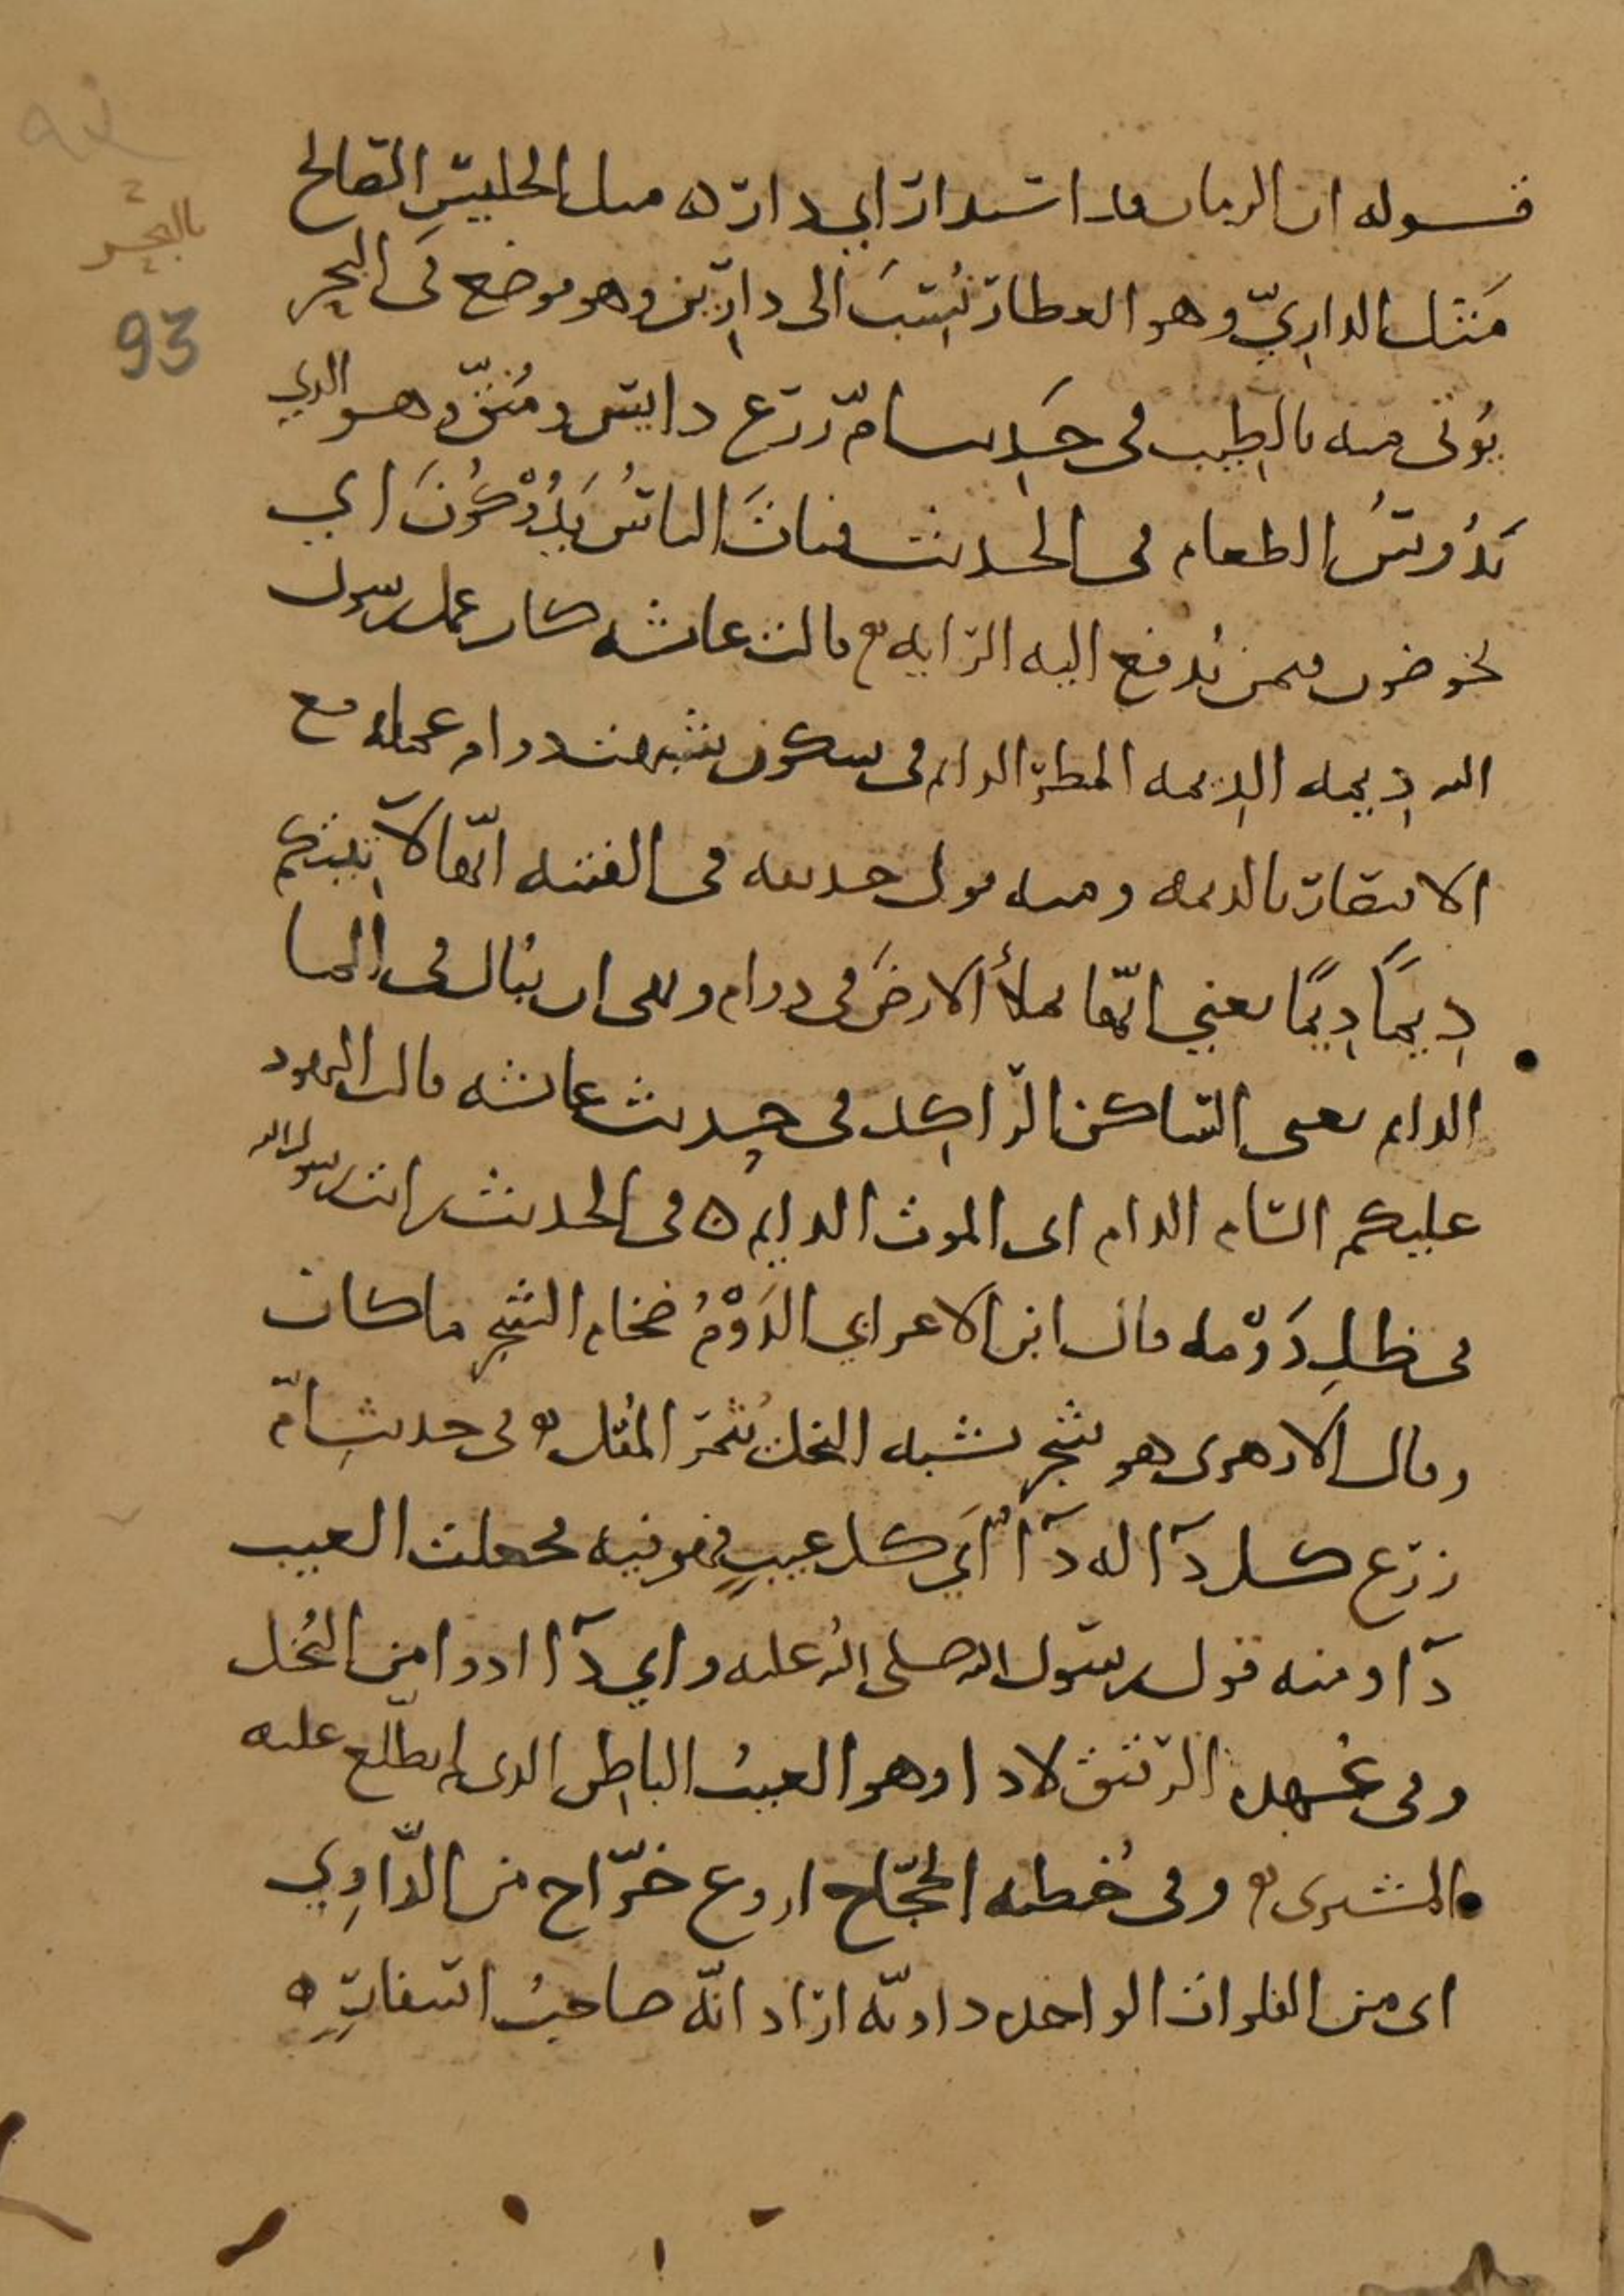 قوله ان الزمان قد استدار اي دار ه مثل الجليس الصالح
مَثل الداريّ وهو العطار نُسِبَ الى دارِين وهو موضع في البحر
يُوتى منه بالطِيب في حَدِيث امّ زرع دايس ومُنَقّ وهو الذي
يَدُوسُ الطعام في الحديث فبات الناسُ يَدُوكُونَ اي
يخوضون فيمن يُدفع اليه الراية ه قالت عائشه كان عمل رسول
الله دِيمه الدِيمه المطر الدايم في سكون شبهت دوام عمله مع
الاقتصار بالديمه ومنه قول حذيفه في الفتنه انّها لآتِيَتكم
دِيَمًا دِيَمًا يعني انّها تملأ الارضَ في دوام ونهى ان يبال في الما
الدايم يعني الساكن الراكِد في حديث عائشه قالت لليهود
عليكم السام الدام اي الموت الدايم ه في الحديث رايت رسول الله
في ظلِ دَوْمه قال ابن الاعرابي الدَوْمُ ضخام الشجر ما كان
وقال الازهري هو شجر يشبه النخل يُثمر المُقل ه في حديث امّ
زرع كل دآ له دآ اي كل عيبٍ فهو فيه فجعلت العيب
دآ ومنه قول رسول الله صلى الله عليه واي دآ ادوا من البُخل
وفي عُهده الرقيق لا دا وهو العيب الباطن الذي لم يطّلع عليه
المشتري ه وفي خُطبه الحجّاج اروع خرّاج من الدّاوِي
اي من الفلوات الواحده داويّه اراد انّه صاحب اسفارٍ ه
بالبحر
93